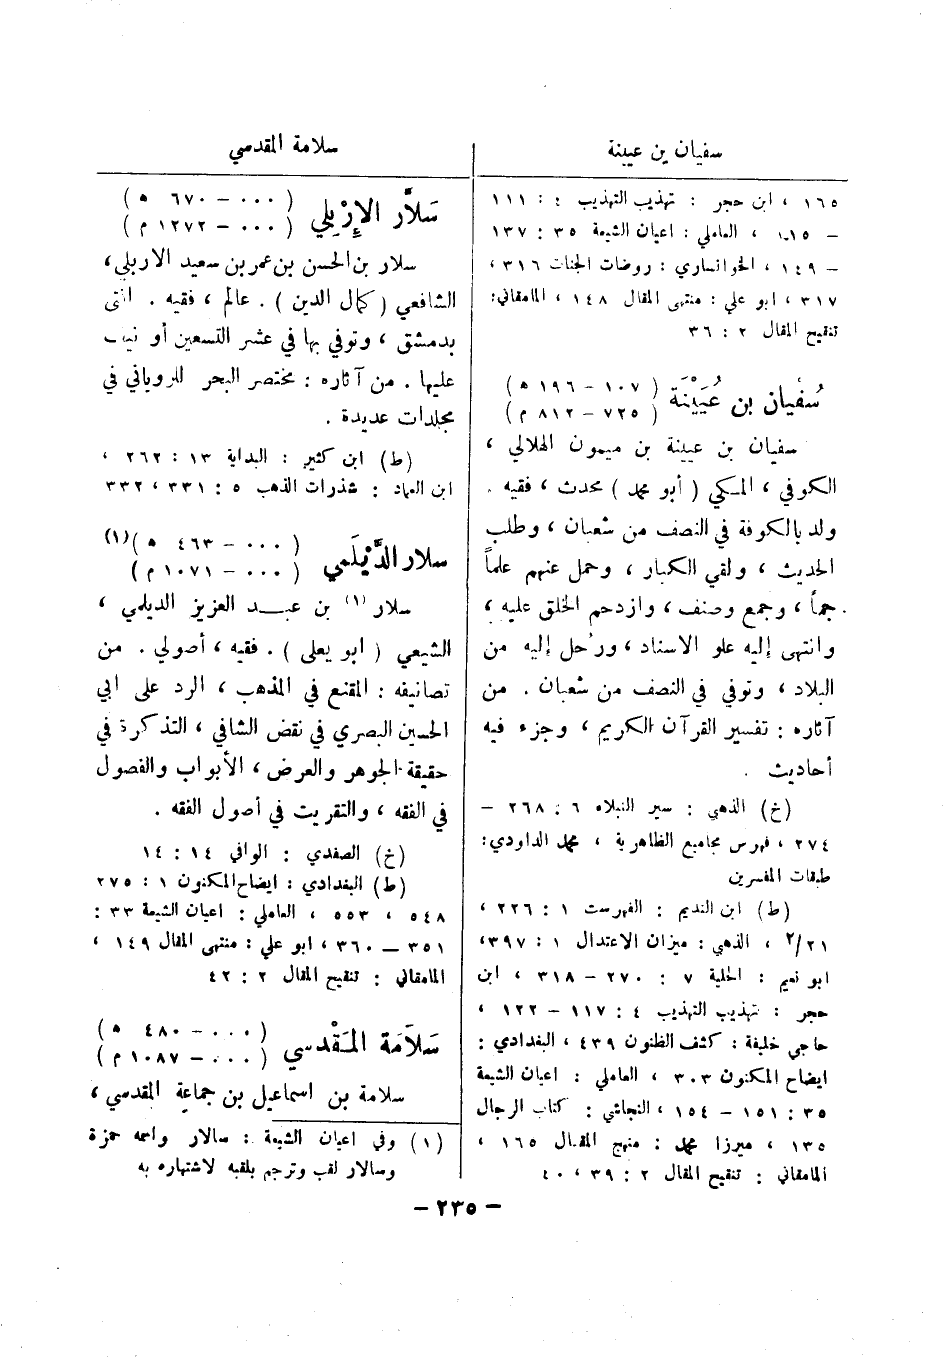 سفيان بن عيينة
١٦٥ ، ابن حجر : تهذيب التهذيب ٤ : ١١١
– ١١٥ ، العاملي : اعيان الشيعة ٣٥ : ١٣٧
– ١٤٩ ، الخوانساري : روضات الجنات ٣١٦ ،
٣١٧ ، ابو علي : منتهى المقال ١٤٨ ، المامقاني:
تنقيح المقال ٢ : ٣٦
سُفيان بن عُيَيْنَة ( ١٠٧ – ١٩٦ ه )
( ٧٢٥ – ٨١٢ م )
سفيان بن عيينة بن ميمون الهلالي ،
الكوفي ، المكي ( أبو محمد ) محدث ، فقيه .
ولد بالكوفة في النصف من شعبان ، وطلب
الحديث ، ولقي الكبار ، وحمل عنهم علماً
جماً ، وجمع وصنف ، وازدحم الخلق عليه ،
وانتهى إليه علو الاسناد ، ورُحل إليه من
البلاد ، وتوفي في النصف من شعبان . من
آثاره : تفسير القرآن الكريم ، وجزء فيه
أحاديث .
(خ) الذهبي : سير النبلاء ٦ : ٢٦٨ –
٢٧٤ ، فهرس مجاميع الظاهرية ، محمد الداودي:
طبقات المفسرين
(ط) ابن النديم : الفهرست ١ : ٢٢٦ ،
٢/٢١ ، الذهبي : ميزان الاعتدال ١ : ٣٩٧،
ابو نعيم : الحلية ٧ : ٢٧٠ – ٣١٨ ، ابن
حجر : تهذيب التهذيب ٤ : ١١٧ – ١٢٢ ،
حاجي خليفة : كشف الظنون ٤٣٩ ، البغدادي :
ايضاح المكنون ٣٠٣ ، العاملي : اعيان الشيعة
٣٥ : ١٥١ – ١٥٤ ، النجاشي : كتاب الرجال
١٣٥ ، ميرزا محمد : منهج المقال ١٦٥ ،
المامقاني : تنقيح المقال ٢ : ٣٩ ، ٤٠
سلامة المقدسي
سَلاَّر الإِرْبِلي ( ٠٠٠ – ٦٧٠ ه )
( ٠٠٠ – ١٢٧٢ م )
سلار بن الحسن بن عمر بن سعيد الاربلي ،
الشافعي ( كمال الدين ) . عالم ، فقيه . افتى
بدمشق ، وتوفي بها في عشر التسعين أو نيف
عليها . من آثاره : مختصر البحر للروياني في
مجلدات عديدة .
(ط) ابن كثير : البداية ١٣ : ٢٦٢ ،
ابن العماد : شذرات الذهب ٥ : ٣٣١ ، ٣٣٢
سلار الدَّيْلَمي ( ٠٠٠ – ٤٦٣ ه )(١)
( ٠٠٠ – ١٠٧١ م )
سلار (١) بن عبد العزيز الديلمي ،
الشيعي ( ابو يعلى ) . فقيه ، أصولي . من
تصانيفه : المقنع في المذهب ، الرد على ابي
الحسين البصري في نقض الشافي ، التذكرة في
حقيقة الجوهر والعرض ، الأبواب والفصول
في الفقه ، والتقريب في أصول الفقه .
(خ) الصفدي : الوافي ١٤ : ١٤
(ط) البغدادي : ايضاح المكنون ١ : ٢٧٥
٥٤٨ ، ٥٥٣ ، العاملي : اعيان الشيعة ٣٣ :
٣٥١ – ٣٦٠ ، ابو علي : منتهى المقال ١٤٩ ،
المامقاني : تنقيح المقال ٢ : ٤٢
سَلاَمَة المَقْدسي ( ٠٠٠ – ٤٨٠ ه )
( ٠٠٠ – ١٠٨٧ م )
سلامة بن اسماعيل بن جماعة المقدسي ،
(١) وفي اعيان الشيعة : سالار واسمه حمزة
وسالار لقب وترجم بلقبه لاشتهاره به
– ٢٣٥ –